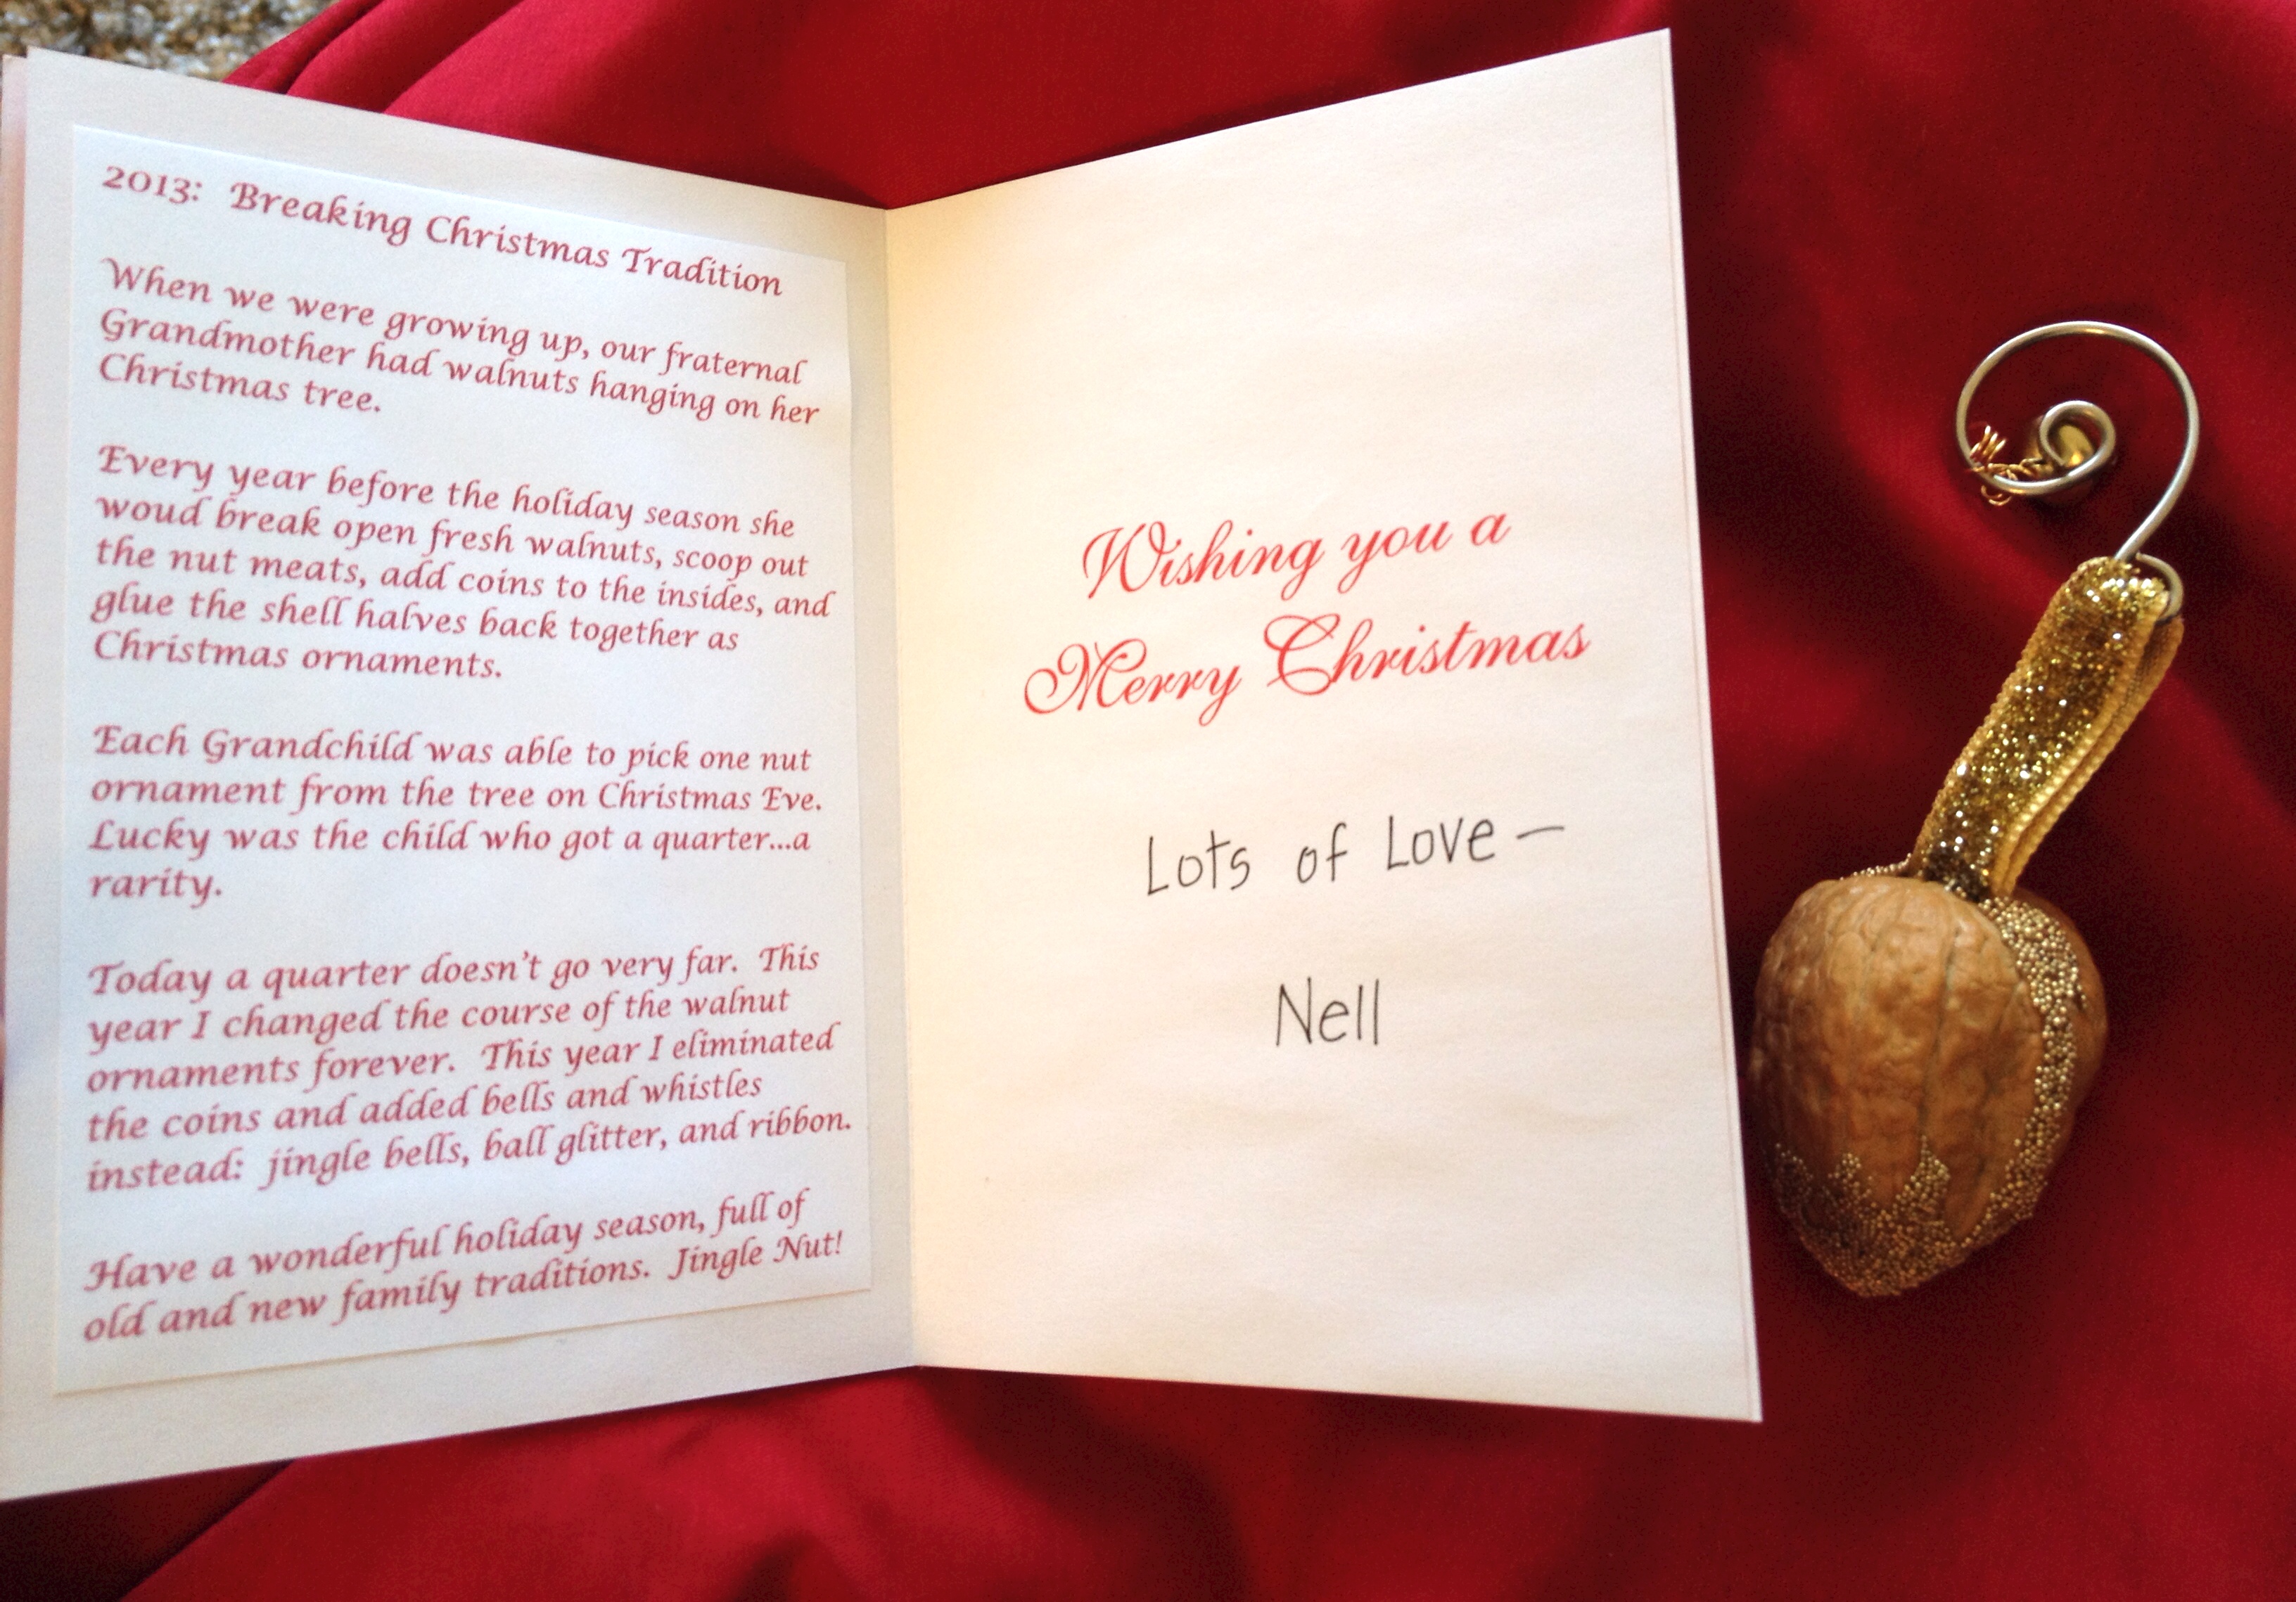 2013: Breaking Christmas Tradition
When we were growing up, our fraternal
Grandmother had walnuts hanging on her
Christmas tree.
Every year before the holiday season she
woud break open fresh walnuts, scoop out
the nut meats, add coins to the insides, and
glue the shell halves back together as
Christmas ornaments.
Each Grandchild was able to pick one nut
ornament from the tree on Christmas Eve.
Lucky was the child who got a quarter...a
rarity.
Today a quarter doesn't go very far. This
year I changed the course of the walnut
ornaments forever. This year I eliminated
the coins and added bells and whistles
instead: jingle bells, ball glitter, and ribbon.
Have a wonderful holiday season, full of
old and new family traditions. Jingle Nut!
Wishing you a
Merry Christmas
Lots of Love —
Nell